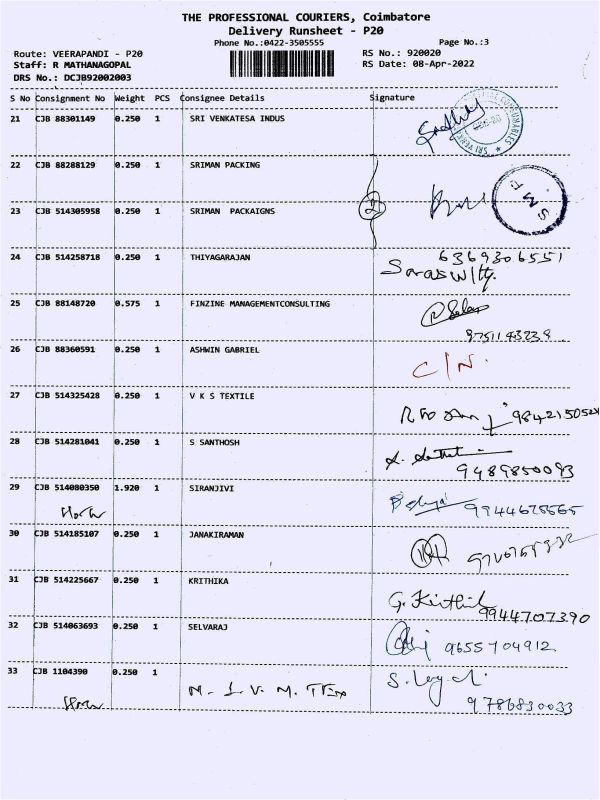 THE PROFESSIONAL COURIERS, Coimbatore
Delivery Runsheet - P20
Phone No.:0422-3505555
Page No.:3
Route: VEERAPANDI - P20
RS No.: 920020
Staff: R MATHANAGOPAL
RS Date: 08-Apr-2022
DRS No.: DCJB92002003
S No Consignment No Weight PCS Consignee Details Signature
21 CJB 88301149 0.250 1 SRI VENKATESA INDUS
22 CJB 88288129 0.250 1 SRIMAN PACKING
S M P
23 CJB 514305958 0.250 1 SRIMAN PACKAIGNS
24 CJB 514258718 0.250 1 THIYAGARAJAN 6369306551
25 CJB 88148720 0.575 1 FINZINE MANAGEMENTCONSULTING
9751143239
26 CJB 88360591 0.250 1 ASHWIN GABRIEL
C/N.
27 CJB 514325428 0.250 1 V K S TEXTILE
28 CJB 514281041 0.250 1 S SANTHOSH
9489850093
29 CJB 514080350 1.920 1 SIRANJIVI
9944625565
30 CJB 514185107 0.250 1 JANAKIRAMAN
31 CJB 514225667 0.250 1 KRITHIKA
G. Kirthik
9944707390
32 CJB 514063693 0.250 1 SELVARAJ
9655704912
33 CJB 1104390 0.250 1
9786830033